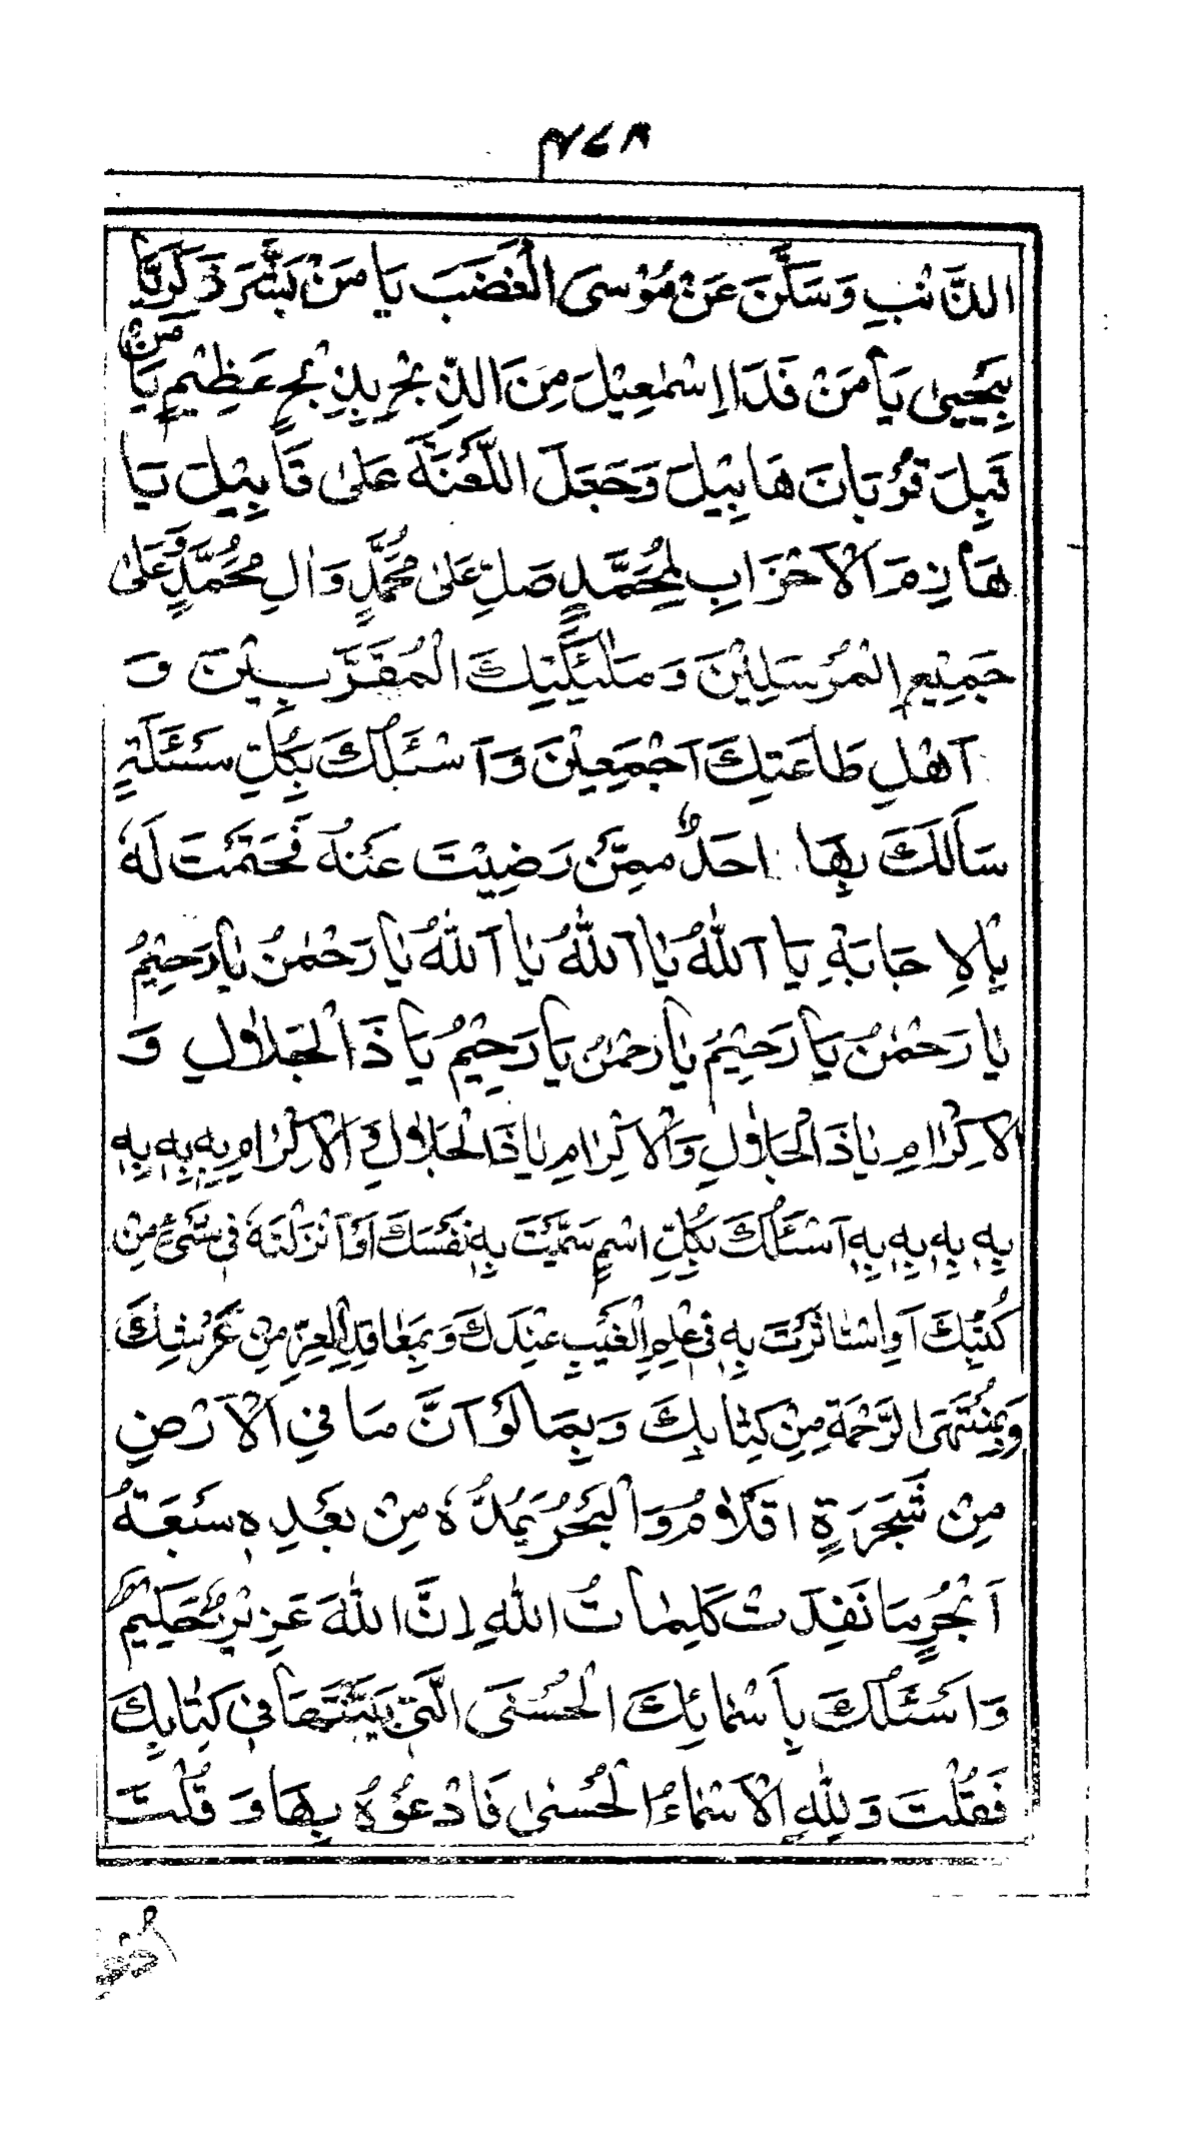 ۴۷۸
الذَّنْبِ وَسَكَّنَ عَنْ مُوْسَى الْغَضَبَ يَا مَنْ بَشَّرَ زَكَرِيَّا
بِيَحْيىٰ يَا مَنْ فَدَا اِسْمٰعِيْلَ مِنَ الذَّبْحِ بِذِبْحٍ عَظِيْمٍ يَا مَنْ
قَبِلَ قُرْبَانَ هَابِيْلَ وَجَعَلَ اللَّعْنَةَ عَلىٰ قَابِيْلَ يَا
هَازِمَ الْاَحْزَابِ لِمُحَمَّدٍ صَلِّ عَلىٰ مُحَمَّدٍ وَاٰلِ مُحَمَّدٍ وَّعَلىٰ
جَمِيْعِ الْمُرْسَلِيْنَ وَمَلٰئِكَتِكَ الْمُقَرَّبِيْنَ وَ
اَهْلِ طَاعَتِكَ اَجْمَعِيْنَ وَاَسْئَلُكَ بِكُلِّ مَسْئَلَةٍ
سَاَلَكَ بِهَا اَحَدٌ مِمَّنْ رَضِيْتَ عَنْهُ فَحَتَمْتَ لَهٗ
بِالْاِجَابَةِ يَا اَللّٰهُ يَا اَللّٰهُ يَا اَللّٰهُ يَا رَحْمٰنُ يَا رَحِيْمُ
يَا رَحْمٰنُ يَا رَحِيْمُ يَا رَحْمٰنُ يَا رَحِيْمُ يَا ذَا الْجَلَالِ وَ
الْاِكْرَامِ يَا ذَا الْجَلَالِ وَالْاِكْرَامِ يَا ذَا الْجَلَالِ وَالْاِكْرَامِ بِهٖ بِهٖ بِهٖ
بِهٖ بِهٖ بِهٖ بِهٖ اَسْئَلُكَ بِكُلِّ اسْمٍ سَمَّيْتَ بِهٖ نَفْسَكَ اَوْ اَنْزَلْتَهٗ فِي شَيْءٍ مِنْ
كُتُبِكَ اَوِ اسْتَاثَرْتَ بِهٖ فِي عِلْمِ الْغَيْبِ عِنْدَكَ وَبِمَعَاقِدِ الْعِزِّ مِنْ عَرْشِكَ
وَبِمُنْتَهَى الرَّحْمَةِ مِنْ كِتَابِكَ وَبِمَا لَوْ اَنَّ مَا فِي الْاَرْضِ
مِنْ شَجَرَةٍ اَقْلَامٌ وَالْبَحْرُ يَمُدُّهٗ مِنْ بَعْدِهٖ سَبْعَةُ
اَبْحُرٍ مَا نَفِدَتْ كَلِمَاتُ اللّٰهِ اِنَّ اللّٰهَ عَزِيْزٌ حَكِيْمٌ
وَاَسْئَلُكَ بِاَسْمَائِكَ الْحُسْنَى الَّتِي بَيَّنْتَهَا فِي كِتَابِكَ
فَقُلْتَ وَلِلّٰهِ الْاَسْمَاءُ الْحُسْنىٰ فَادْعُوْهُ بِهَا وَ قُلْتَ